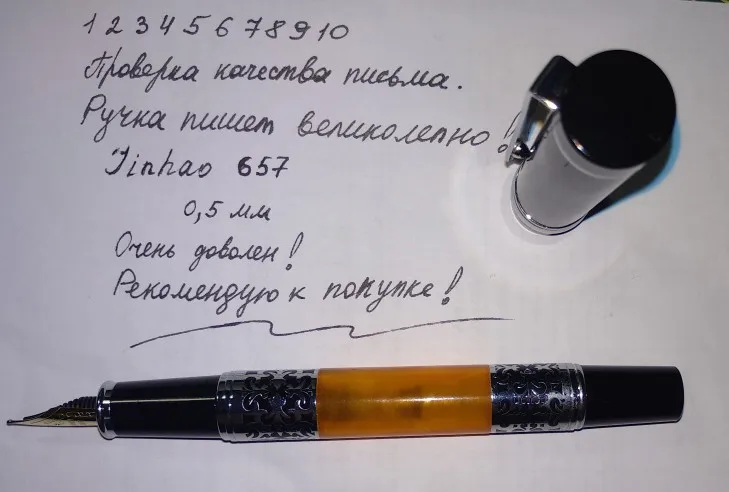 1 2 3 4 5 6 7 8 9 10
Проверка качества письма.
Ручка пишет великолепно!
Jinhao 657
0,5 мм
Очень доволен!
Рекомендую к покупке!